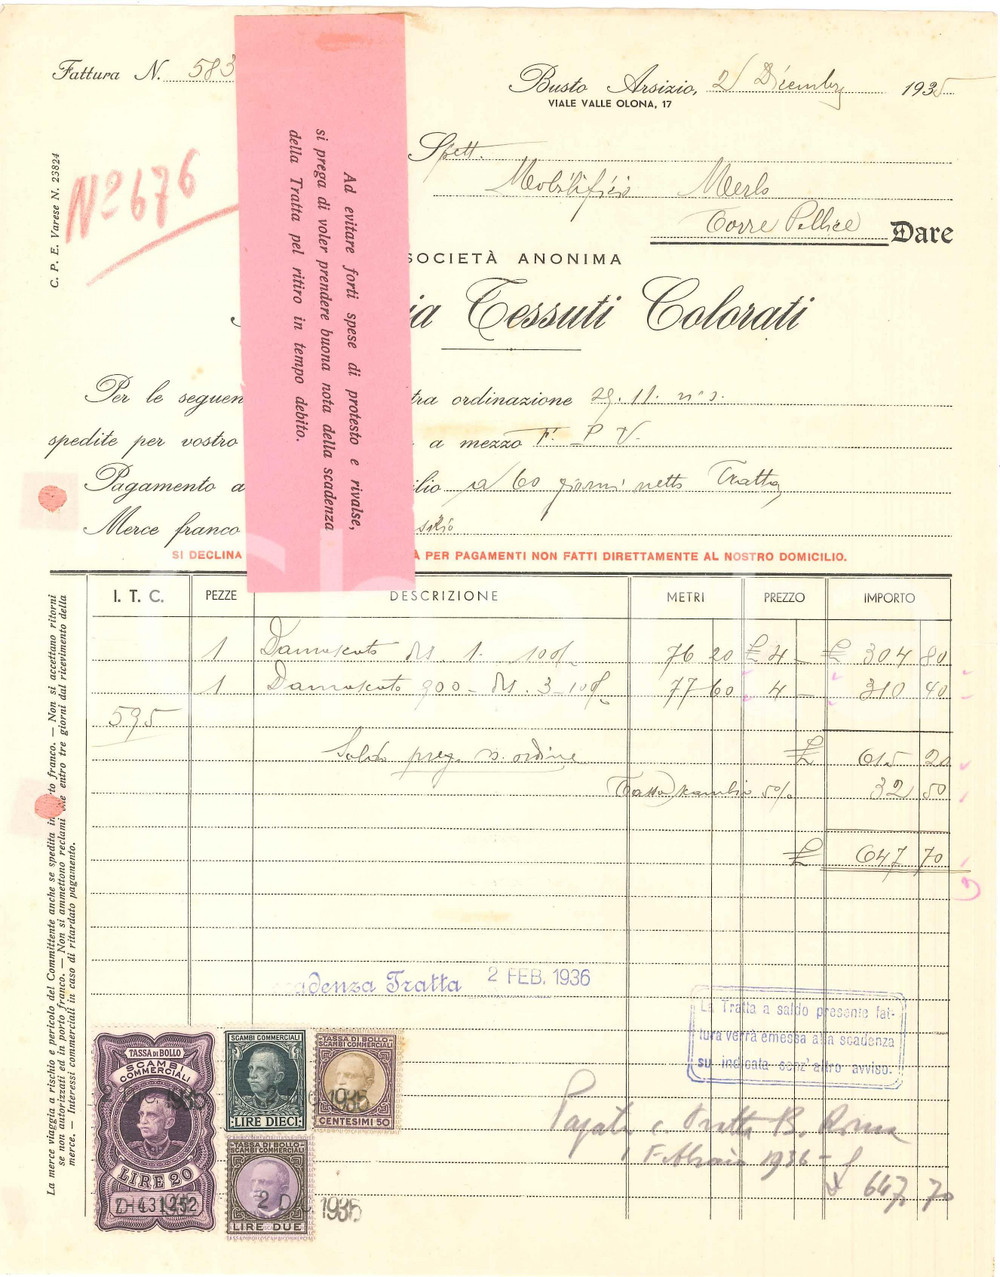 Fattura N. 583
Busto Arsizio, 2 Décembre 1935
VIALE VALLE OLONA, 17
C. P. E. Varese N. 23824
Nº 676
Spett.
Mobilificio Merlo
Torre Pellice Dare
SOCIETÀ ANONIMA
ia Tessuti Colorati
Ad evitare forti spese di protesto e rivalse,
si prega di voler prendere buona nota della scadenza
della Tratta pel ritiro in tempo debito.
Per le seguen tra ordinazione 29. 11.
spedite per vostro a mezzo F. P V.
Pagamento a ilio a 60 giorni netto Tratta
Merce franco
SI DECLINA À PER PAGAMENTI NON FATTI DIRETTAMENTE AL NOSTRO DOMICILIO.
I. T. C. PEZZE DESCRIZIONE METRI PREZZO IMPORTO
1 Damascato Ds. 1. 76 20 £ 4 – £ 304 80
1 Damascato 900 – Ds. 3 77 60 4 – 310 40
595
Saldo preg. v. ordine £ 615 20
Tassa scambio 5% 32 50
£ 647 70
adenza Tratta 2 FEB. 1936
La Tratta a saldo presente fat-
tura verrà emessa alla scadenza
su indicata senz'altro avviso.
La merce viaggia a rischio e pericolo del Committente anche se spedita in porto franco. — Non si accettano ritorni
se non autorizzati ed in porto franco. — Non si ammettono reclami che entro tre giorni dal ricevimento della
merce. — Interessi commerciali in caso di ritardato pagamento.
TASSA DI BOLLO
SCAMBI
COMMERCIALI
LIRE 20
431252
SCAMBI COMMERCIALI
LIRE DIECI
TASSA DI BOLLO
SCAMBI COMMERCIALI
CENTESIMI 50
TASSA DI BOLLO
SCAMBI COMMERCIALI
LIRE DUE
2 DIC 1935
2 DIC 1935
2 DIC 1935
Pagato c Tratta B. Roma
1 Febbraio 1936 –
£ 647, 70